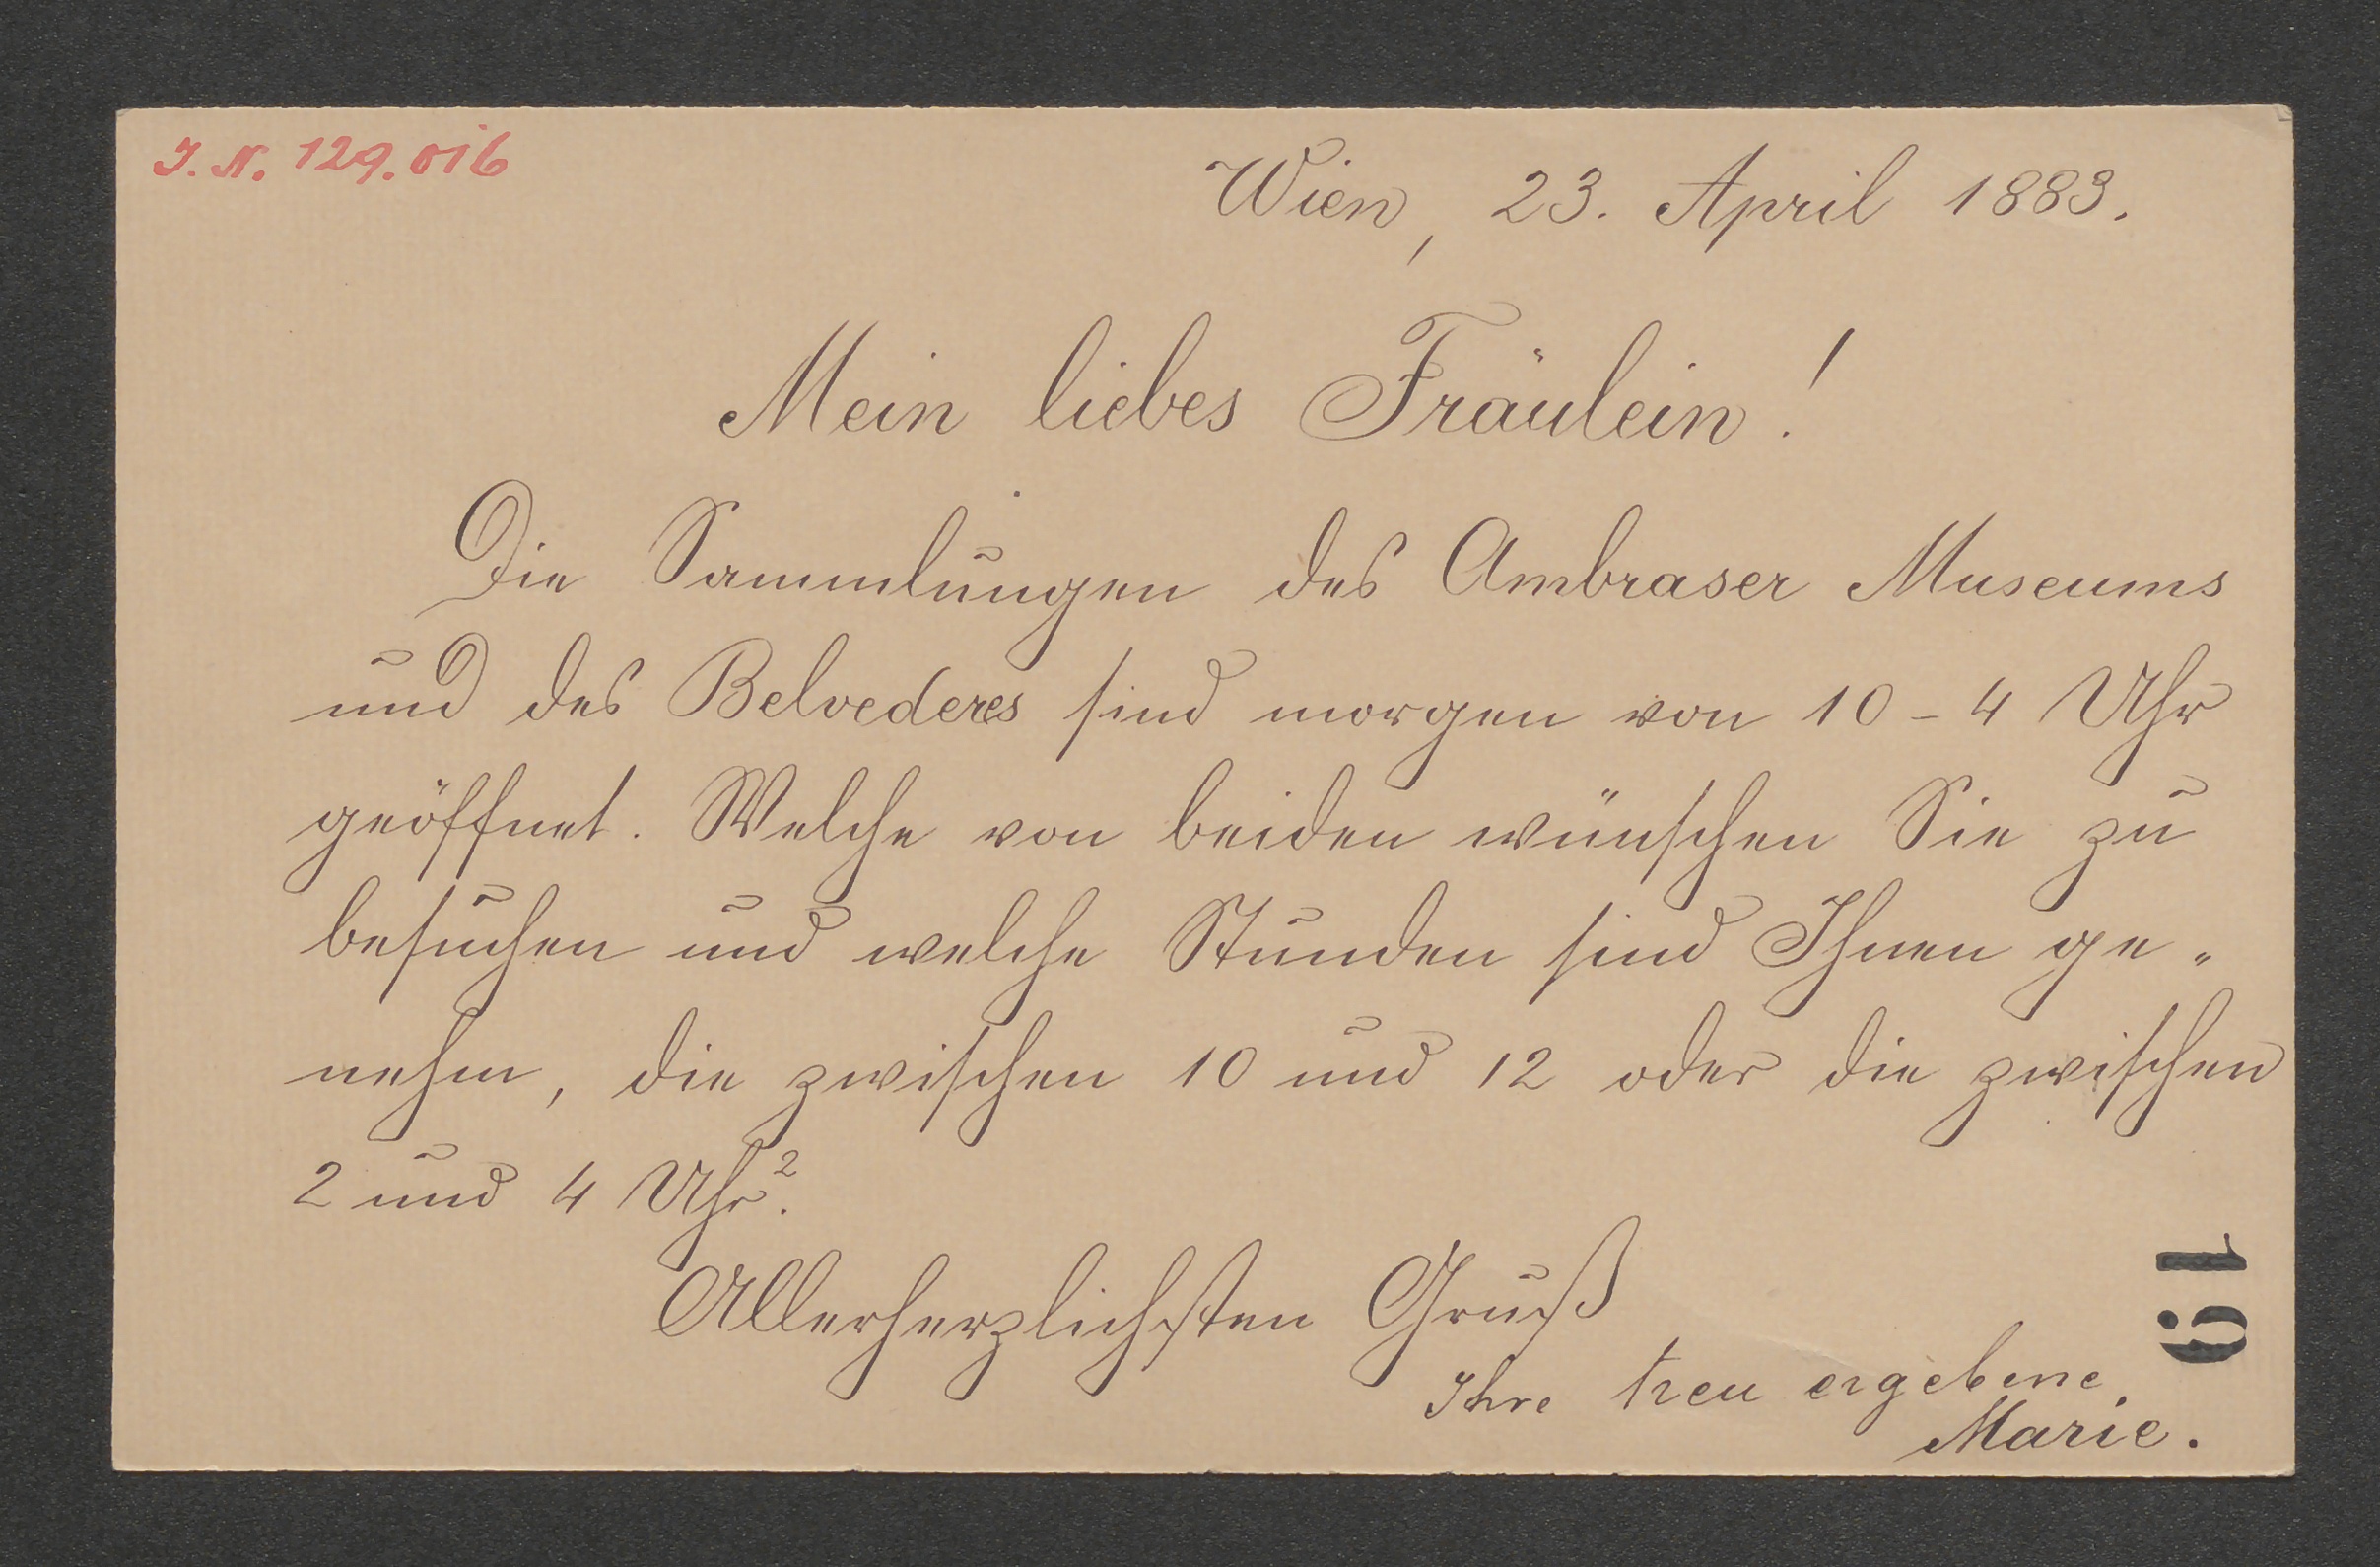 I. N. 129.016
Wien, 23. April 1883.
Mein liebes Fräulein!
Die Sammlungen des Ambraser Museums
und des Belvederes sind morgen von 10 - 4 Uhr
geöffnet. Welche von beiden wünschen Sie zu
besuchen und welche Stunden sind Ihnen ge„
nehm, die zwischen 10 und 12 oder die zwischen
2 und 4 Uhr?
Allerherzlichsten Gruß
Ihre treu ergebene
Marie.
19